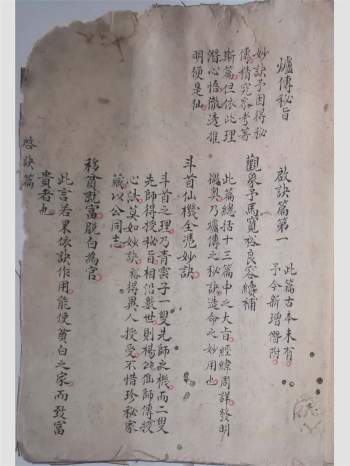 爐傳秘旨
妙訣予因得秘
傳情究參考著
斯篇但依此理
潛心悟徹透誰
明便是仙
啟訣篇第一
此篇古本未有
予今新增僭附
觀象子馬寬裕良容續補
此篇總括十三篇中之大旨經緯周詳發明
機奧乃爐傳之秘訣造命之妙用也
斗首仙機全憑妙訣
斗首之理乃青雲子一叟先師之機而二叟
先師得授秘旨相沿數世則楊 仙師傳授
心法莫如妙訣 得異人授受不惜珍秘家
藏以公同志
移貧就富脫白為官
此言若果依訣作用能使貧白之家而致富
貴者也
啟訣篇